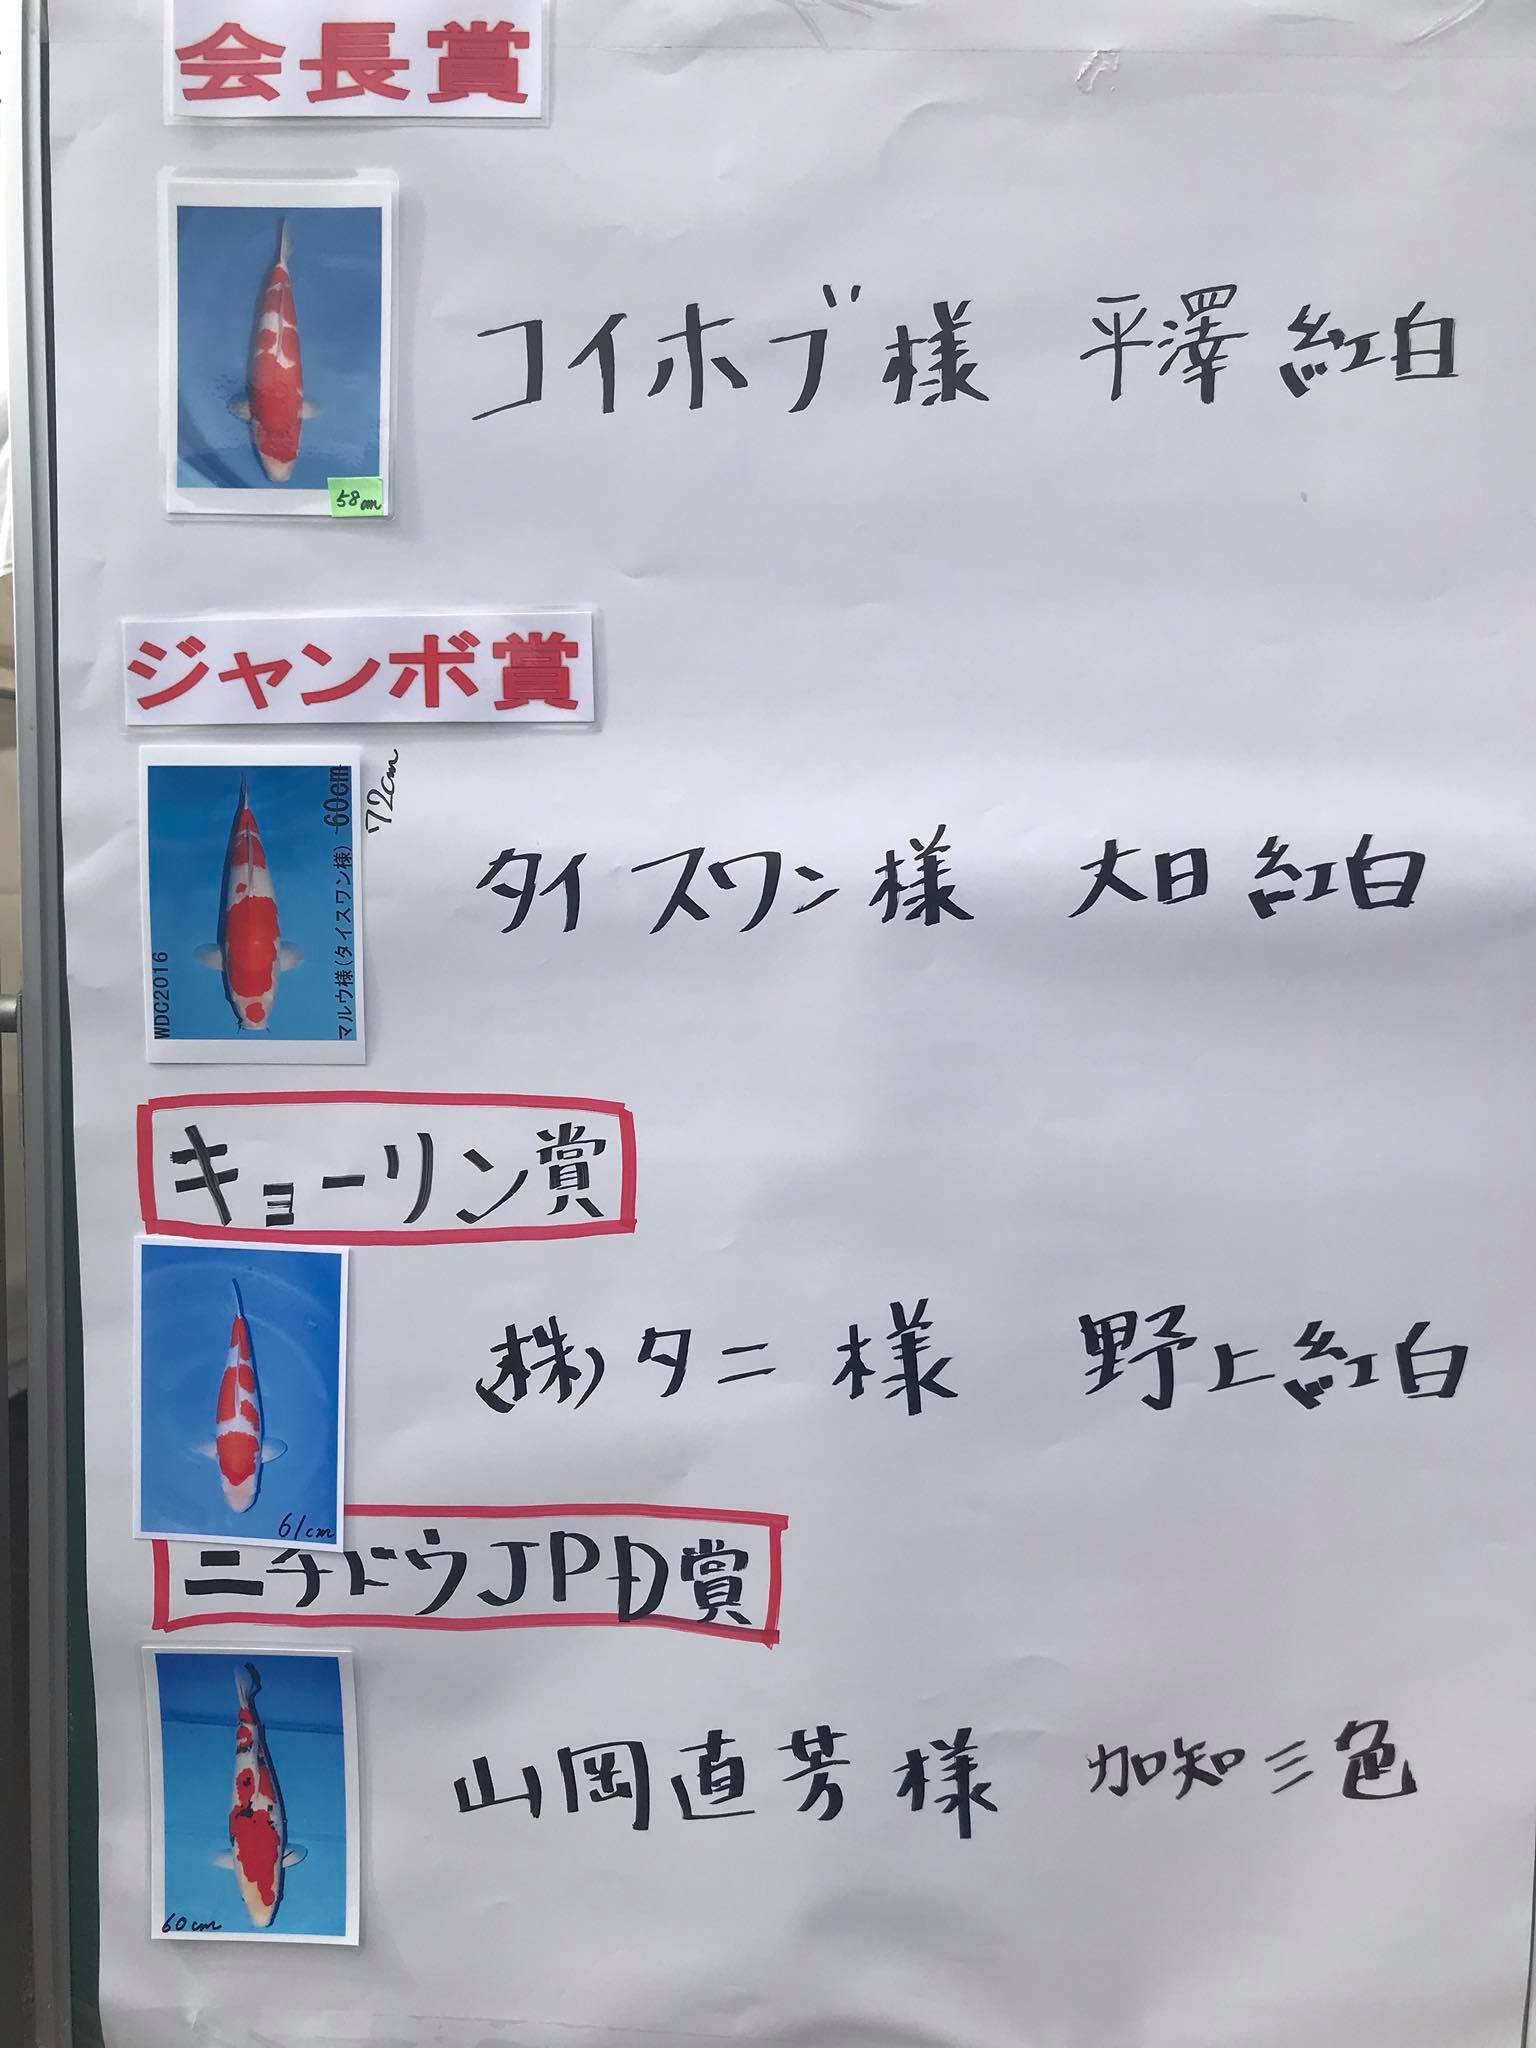 会長賞
58cm
コイホブ様 平澤 紅白
ジャンボ賞
WDC2016
マルウ様(タイスワン様) 60cm
72cm
タイスワン様 大日 紅白
キョーリン賞
61cm
(株)タニ様 野上紅白
ニチドウJPD賞
60cm
山岡直芳様 加知三色